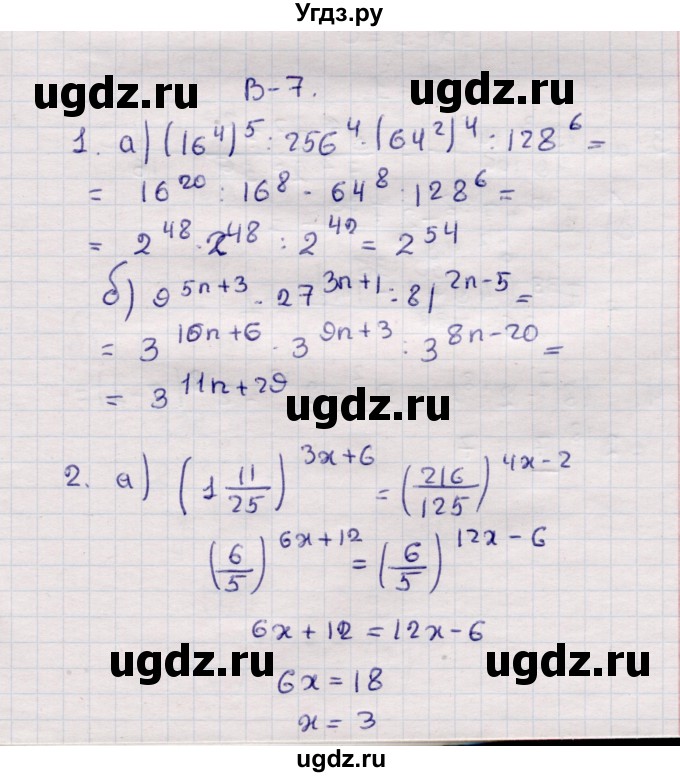 Угдз.ру
угdz.ru угdz.ru
В-7.
1. а) (16^4)^5 : 256^4 · (64^2)^4 : 128^6 =
= 16^20 : 16^8 · 64^8 : 128^6 =
= 2^48 · 2^48 : 2^42 = 2^54
б) 9^(5n+3) · 27^(3n+1) : 81^(2n-5) =
= 3^(10n+6) · 3^(9n+3) : 3^(8n-20) =
= 3^(11n+29)
ugdz.ru
2. а) (1 11/25)^(3x+6) = (216/125)^(4x-2)
(6/5)^(6x+12) = (6/5)^(12x-6)
6x+12 = 12x-6
ugdz.ru ugdz.ru
6x = 18
x = 3
ugdz.ru